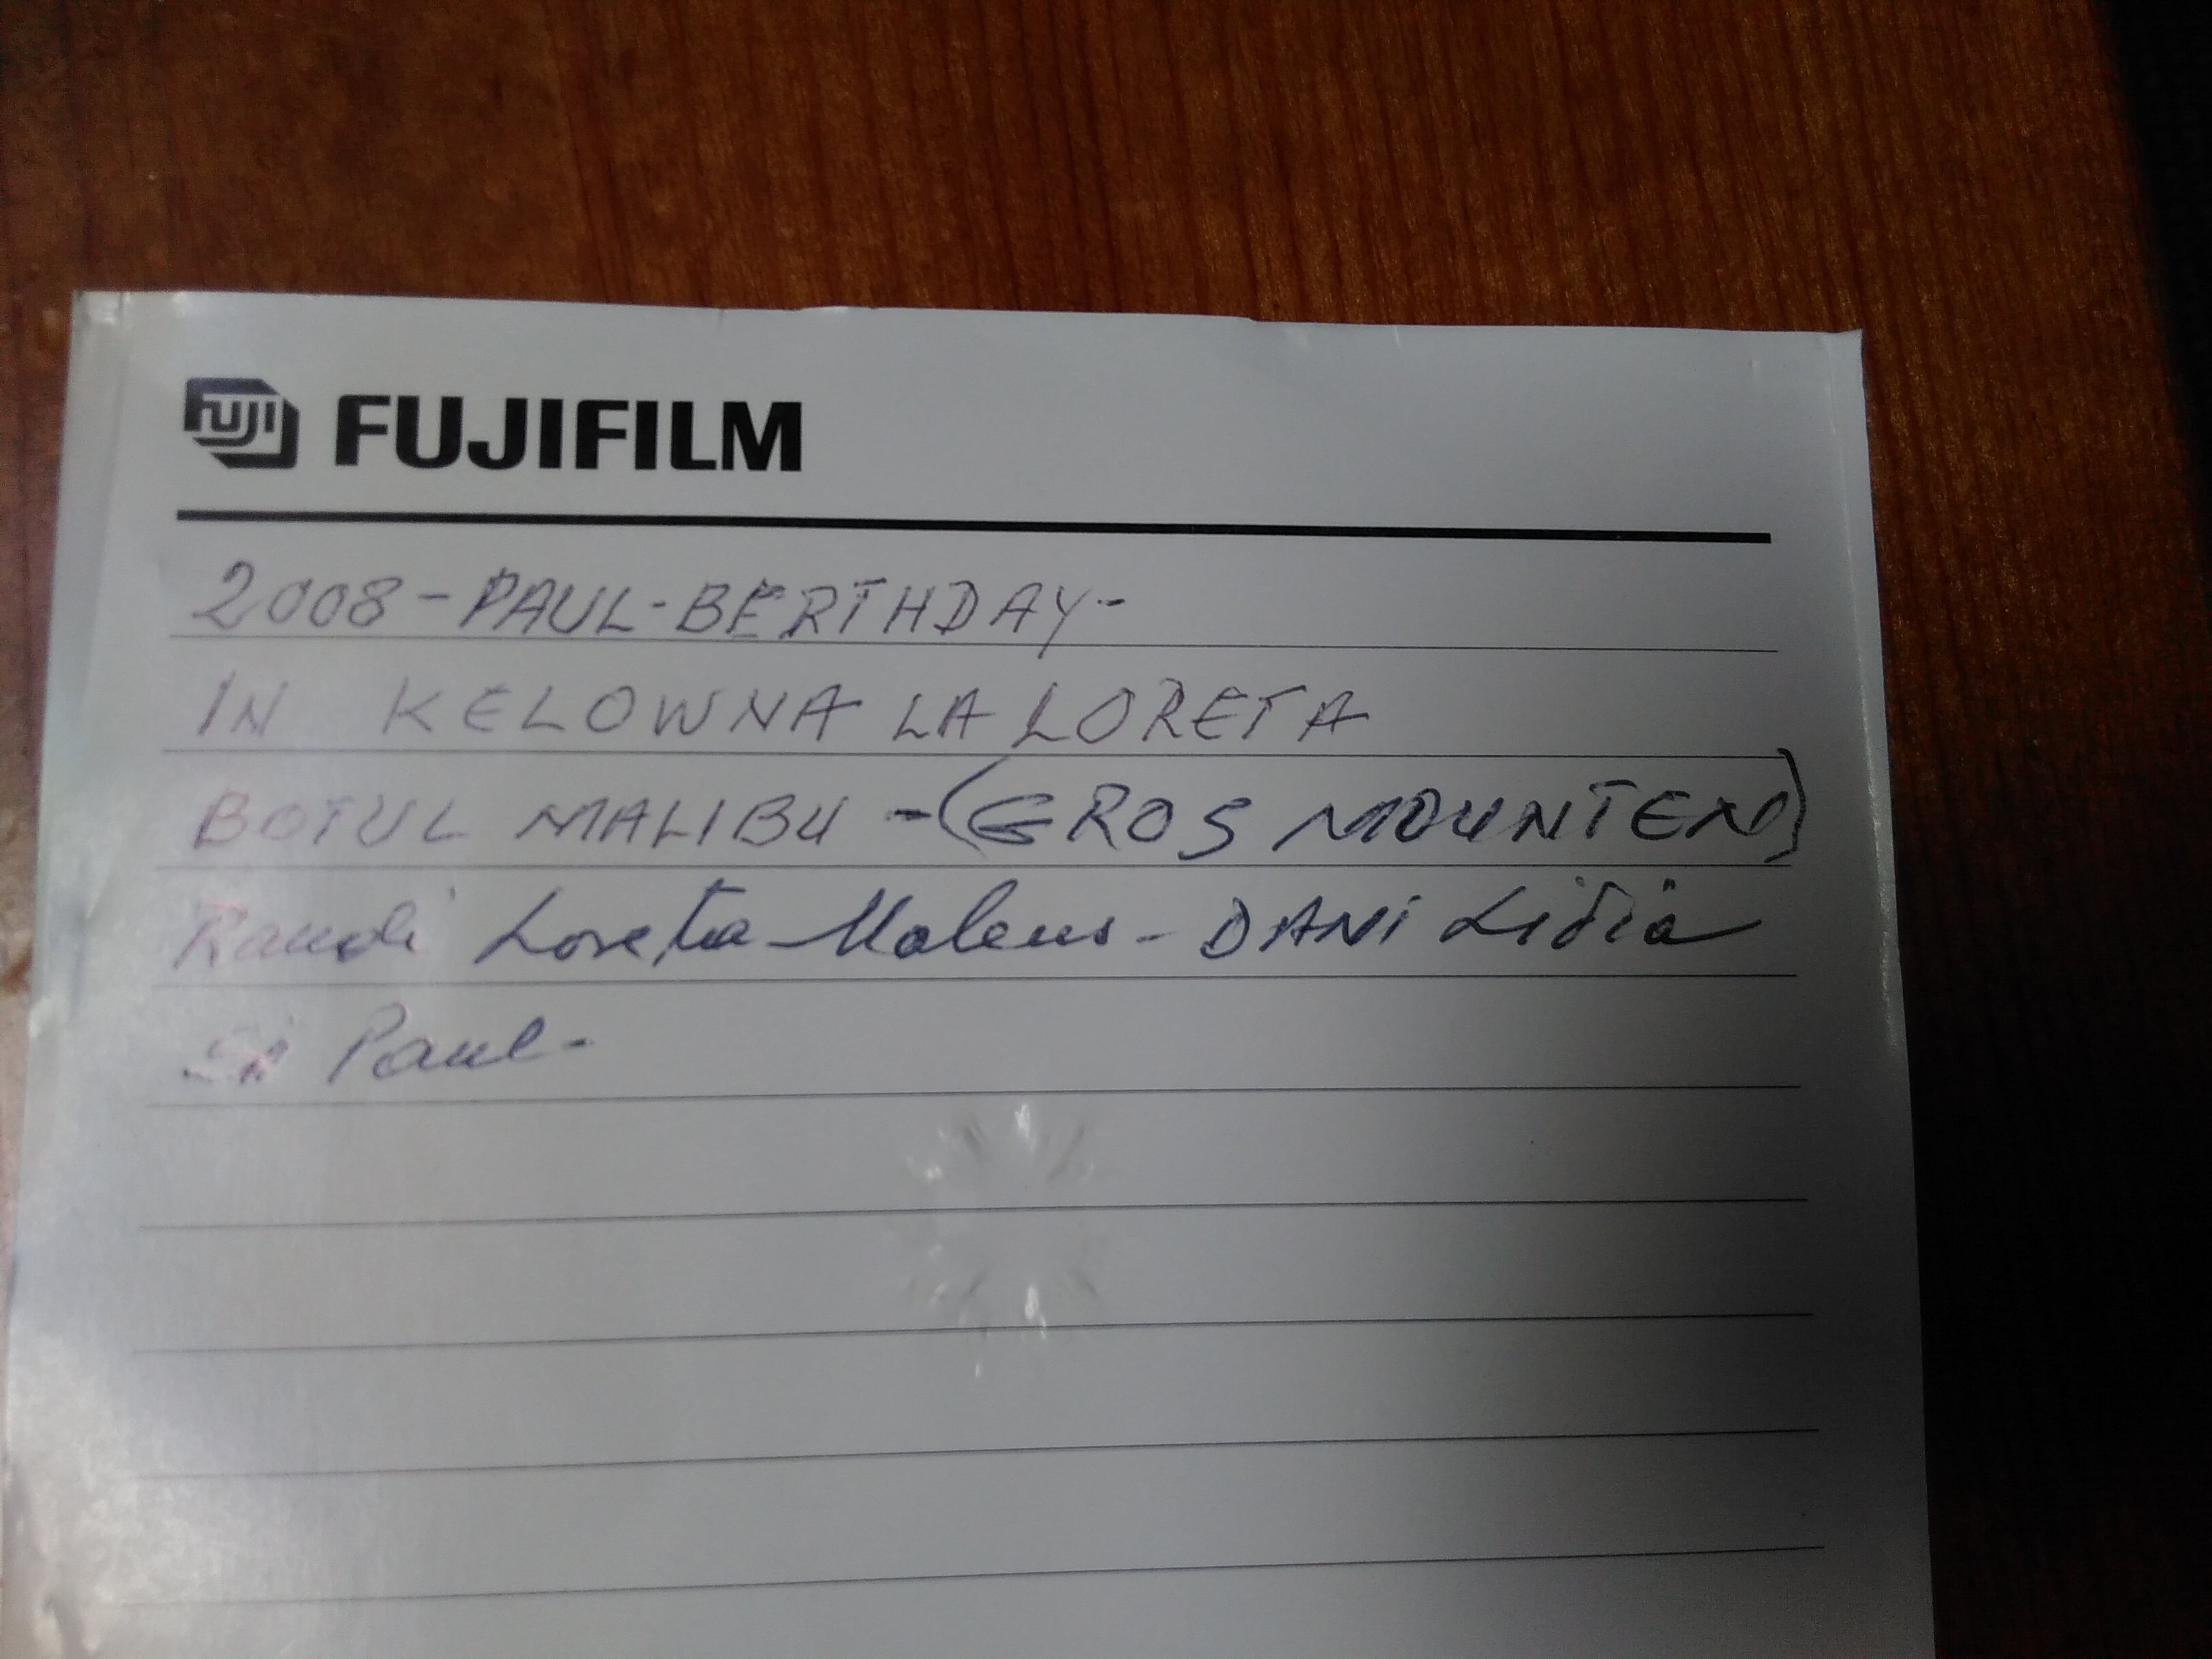 FUJI FUJIFILM
2008-PAUL-BERTHDAY-
IN KELOWNA LA LORETA
BOTUL MALIBU -(GROS MOUNTEN)
Raudi Loreta - - DANI Lidia
Si Paul-